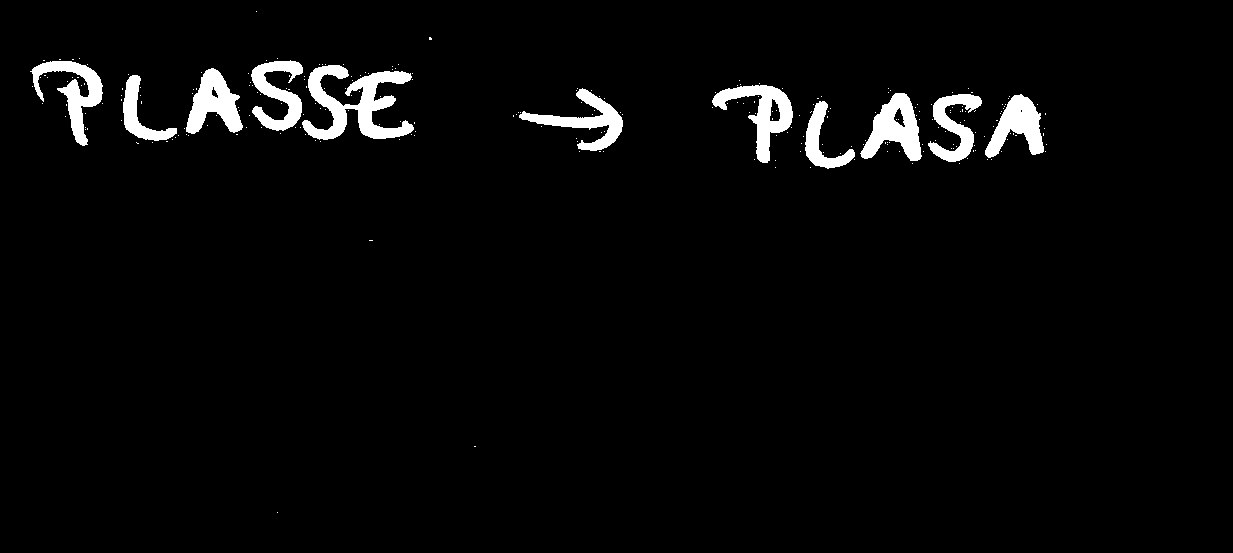 PLASSE → PLASA